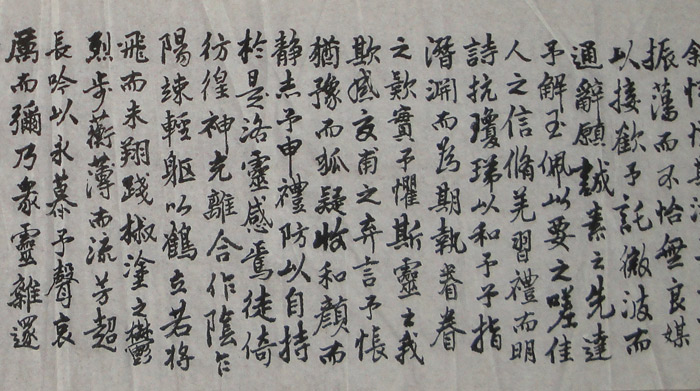 振蕩而不怡無良媒
以接歡予託微波而
通辭願誠素之先達
予解玉佩以要之嗟佳
人之信脩羌習禮而明
詩抗瓊珶以和予予指
潛淵而為期執眷眷
之款實予懼斯靈之我
欺感交甫之弃言予悵
猶豫而狐疑收和顏而
静志予申禮防以自持
於是洛靈感焉徙倚
彷徨神光離合作陰乍
陽竦輕軀以鶴立若將
飛而未翔踐椒塗之鬱
烈步蘅薄而流芳超
長吟以永慕予聲哀
厲而彌乃衆靈雜遝